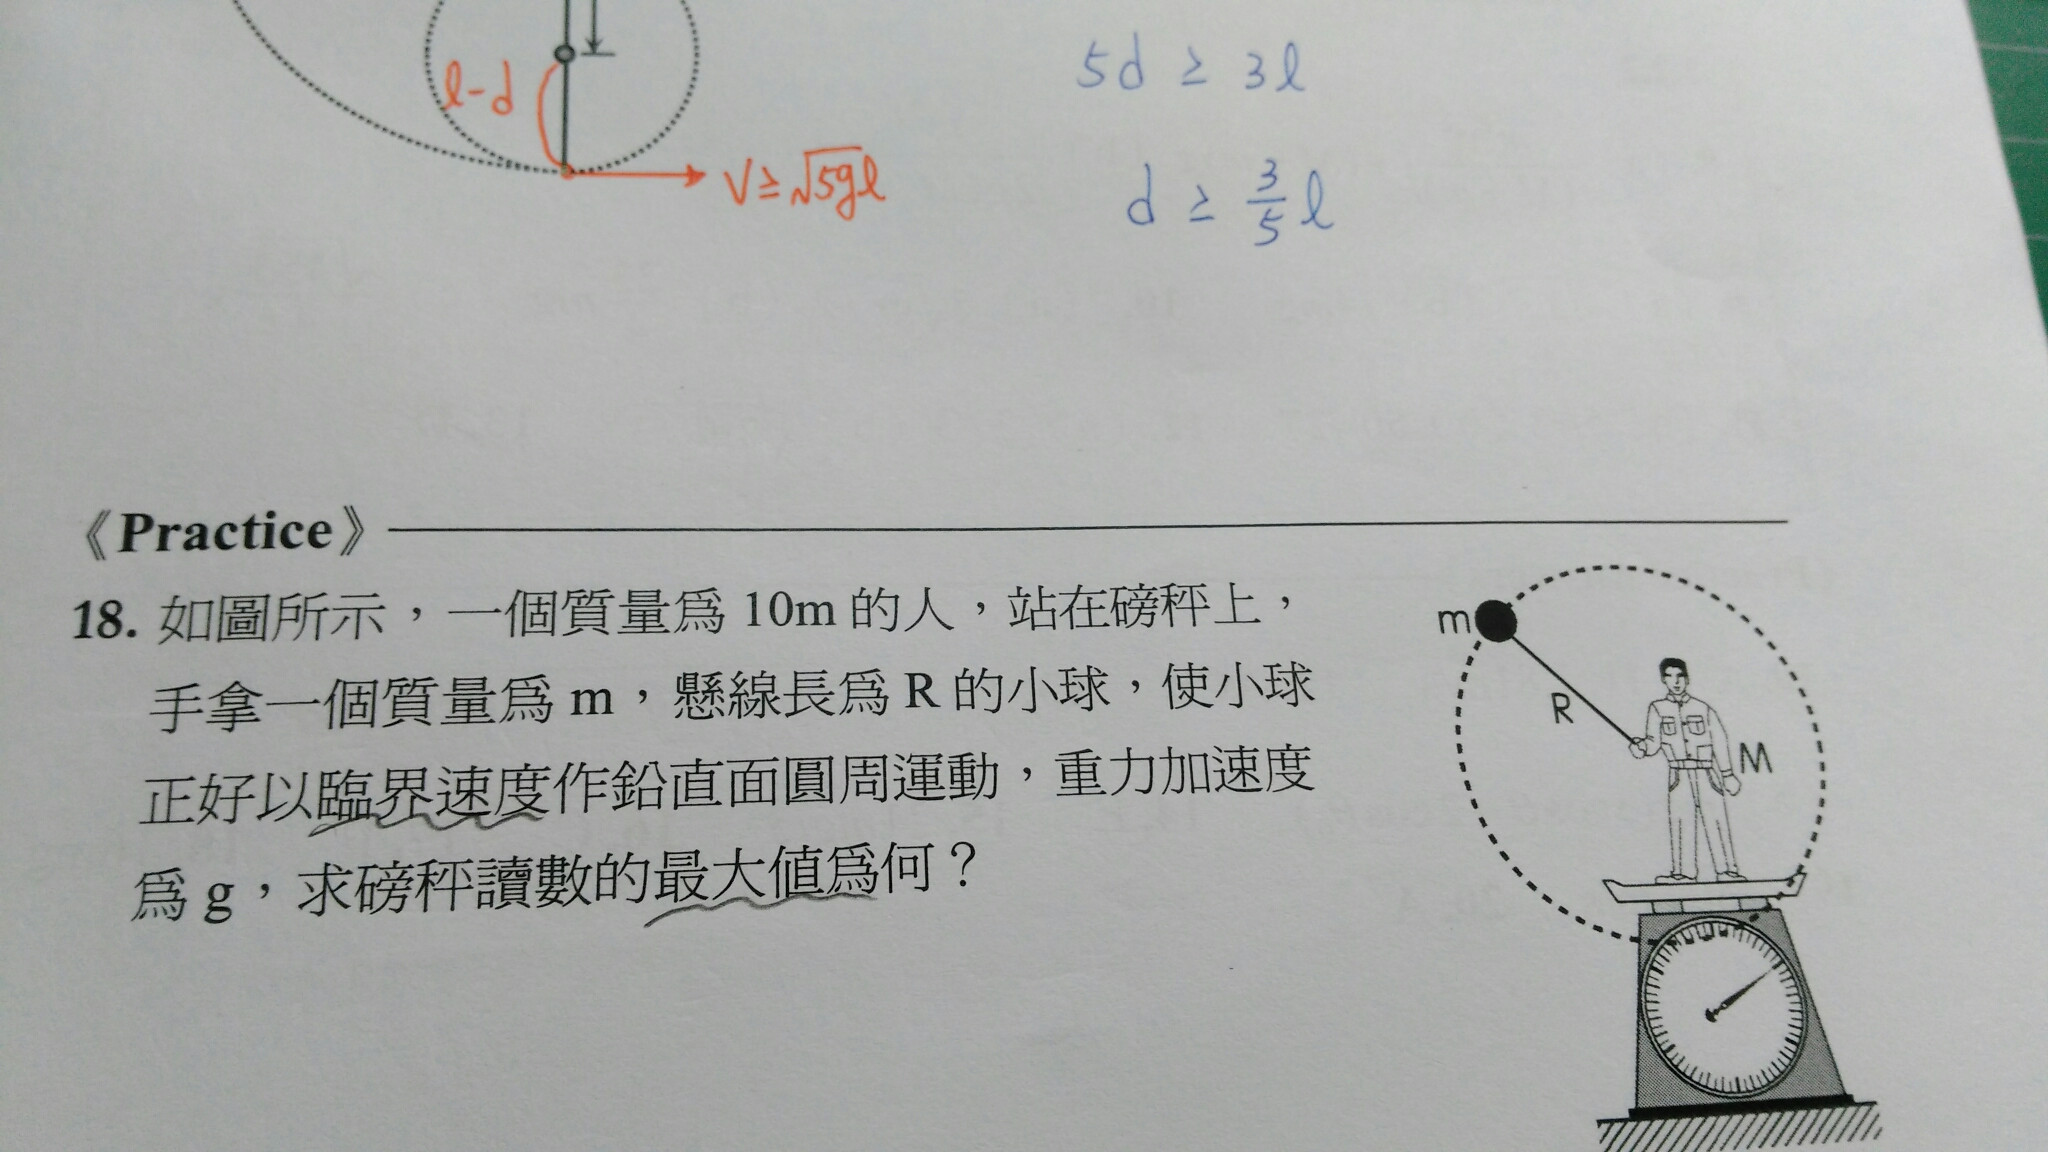 5d ≥ 3l
l-d
V≥√5gl
d ≥ 3/5 l
《Practice》
18. 如圖所示，一個質量爲 10m 的人，站在磅秤上，
手拿一個質量爲 m，懸線長爲 R 的小球，使小球
正好以臨界速度作鉛直面圓周運動，重力加速度
爲 g，求磅秤讀數的最大值爲何？
m
R
M